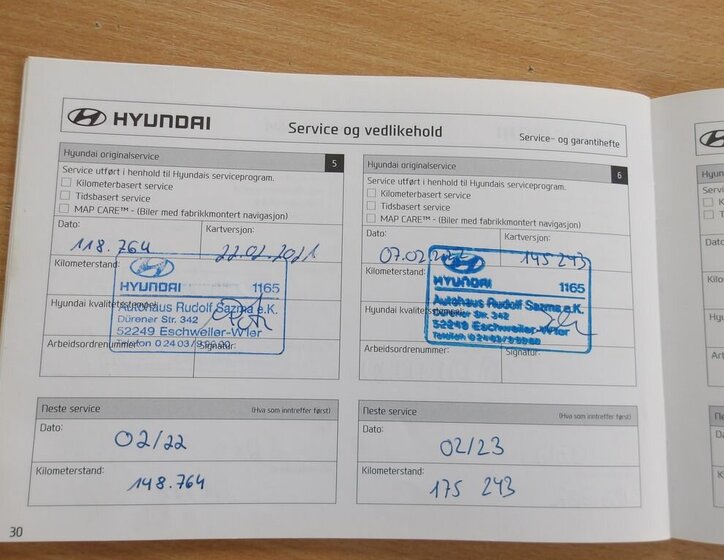 HYUNDAI
Service og vedlikehold
Service- og garantihefte
Hyundai originalservice
5
Service utført i henhold til Hyundais serviceprogram.
Kilometerbasert service
Tidsbasert service
MAP CARE™ - (Biler med fabrikkmontert navigasjon)
Dato:
Kartversjon:
118.764
22.02.2021
Kilometerstand:
HYUNDAI 1165
Hyundai kvalitetsstempel:
Autohaus Rudolf Sazma e.K.
Dürener Str. 342
52249 Eschweiler-W'ler
Telefon 0 24 03 /
Arbeidsordrenummer:
Signatur:
Neste service
(Hva som inntreffer først)
Dato:
02/22
Kilometerstand:
148.764
Hyundai originalservice
6
Service utført i henhold til Hyundais serviceprogram.
Kilometerbasert service
Tidsbasert service
MAP CARE™ - (Biler med fabrikkmontert navigasjon)
Dato:
Kartversjon:
07.02.
145 243
Kilometerstand:
HYUNDAI 1165
Hyundai
Autohaus Rudolf Sazma e.K.
Dürener Str. 342
52249 Eschweiler-W'ler
Telefon 0 24 03 /
Arbeidsordrenummer:
Signatur:
Neste service
(Hva som inntreffer først)
Dato:
02/23
Kilometerstand:
175 243
30